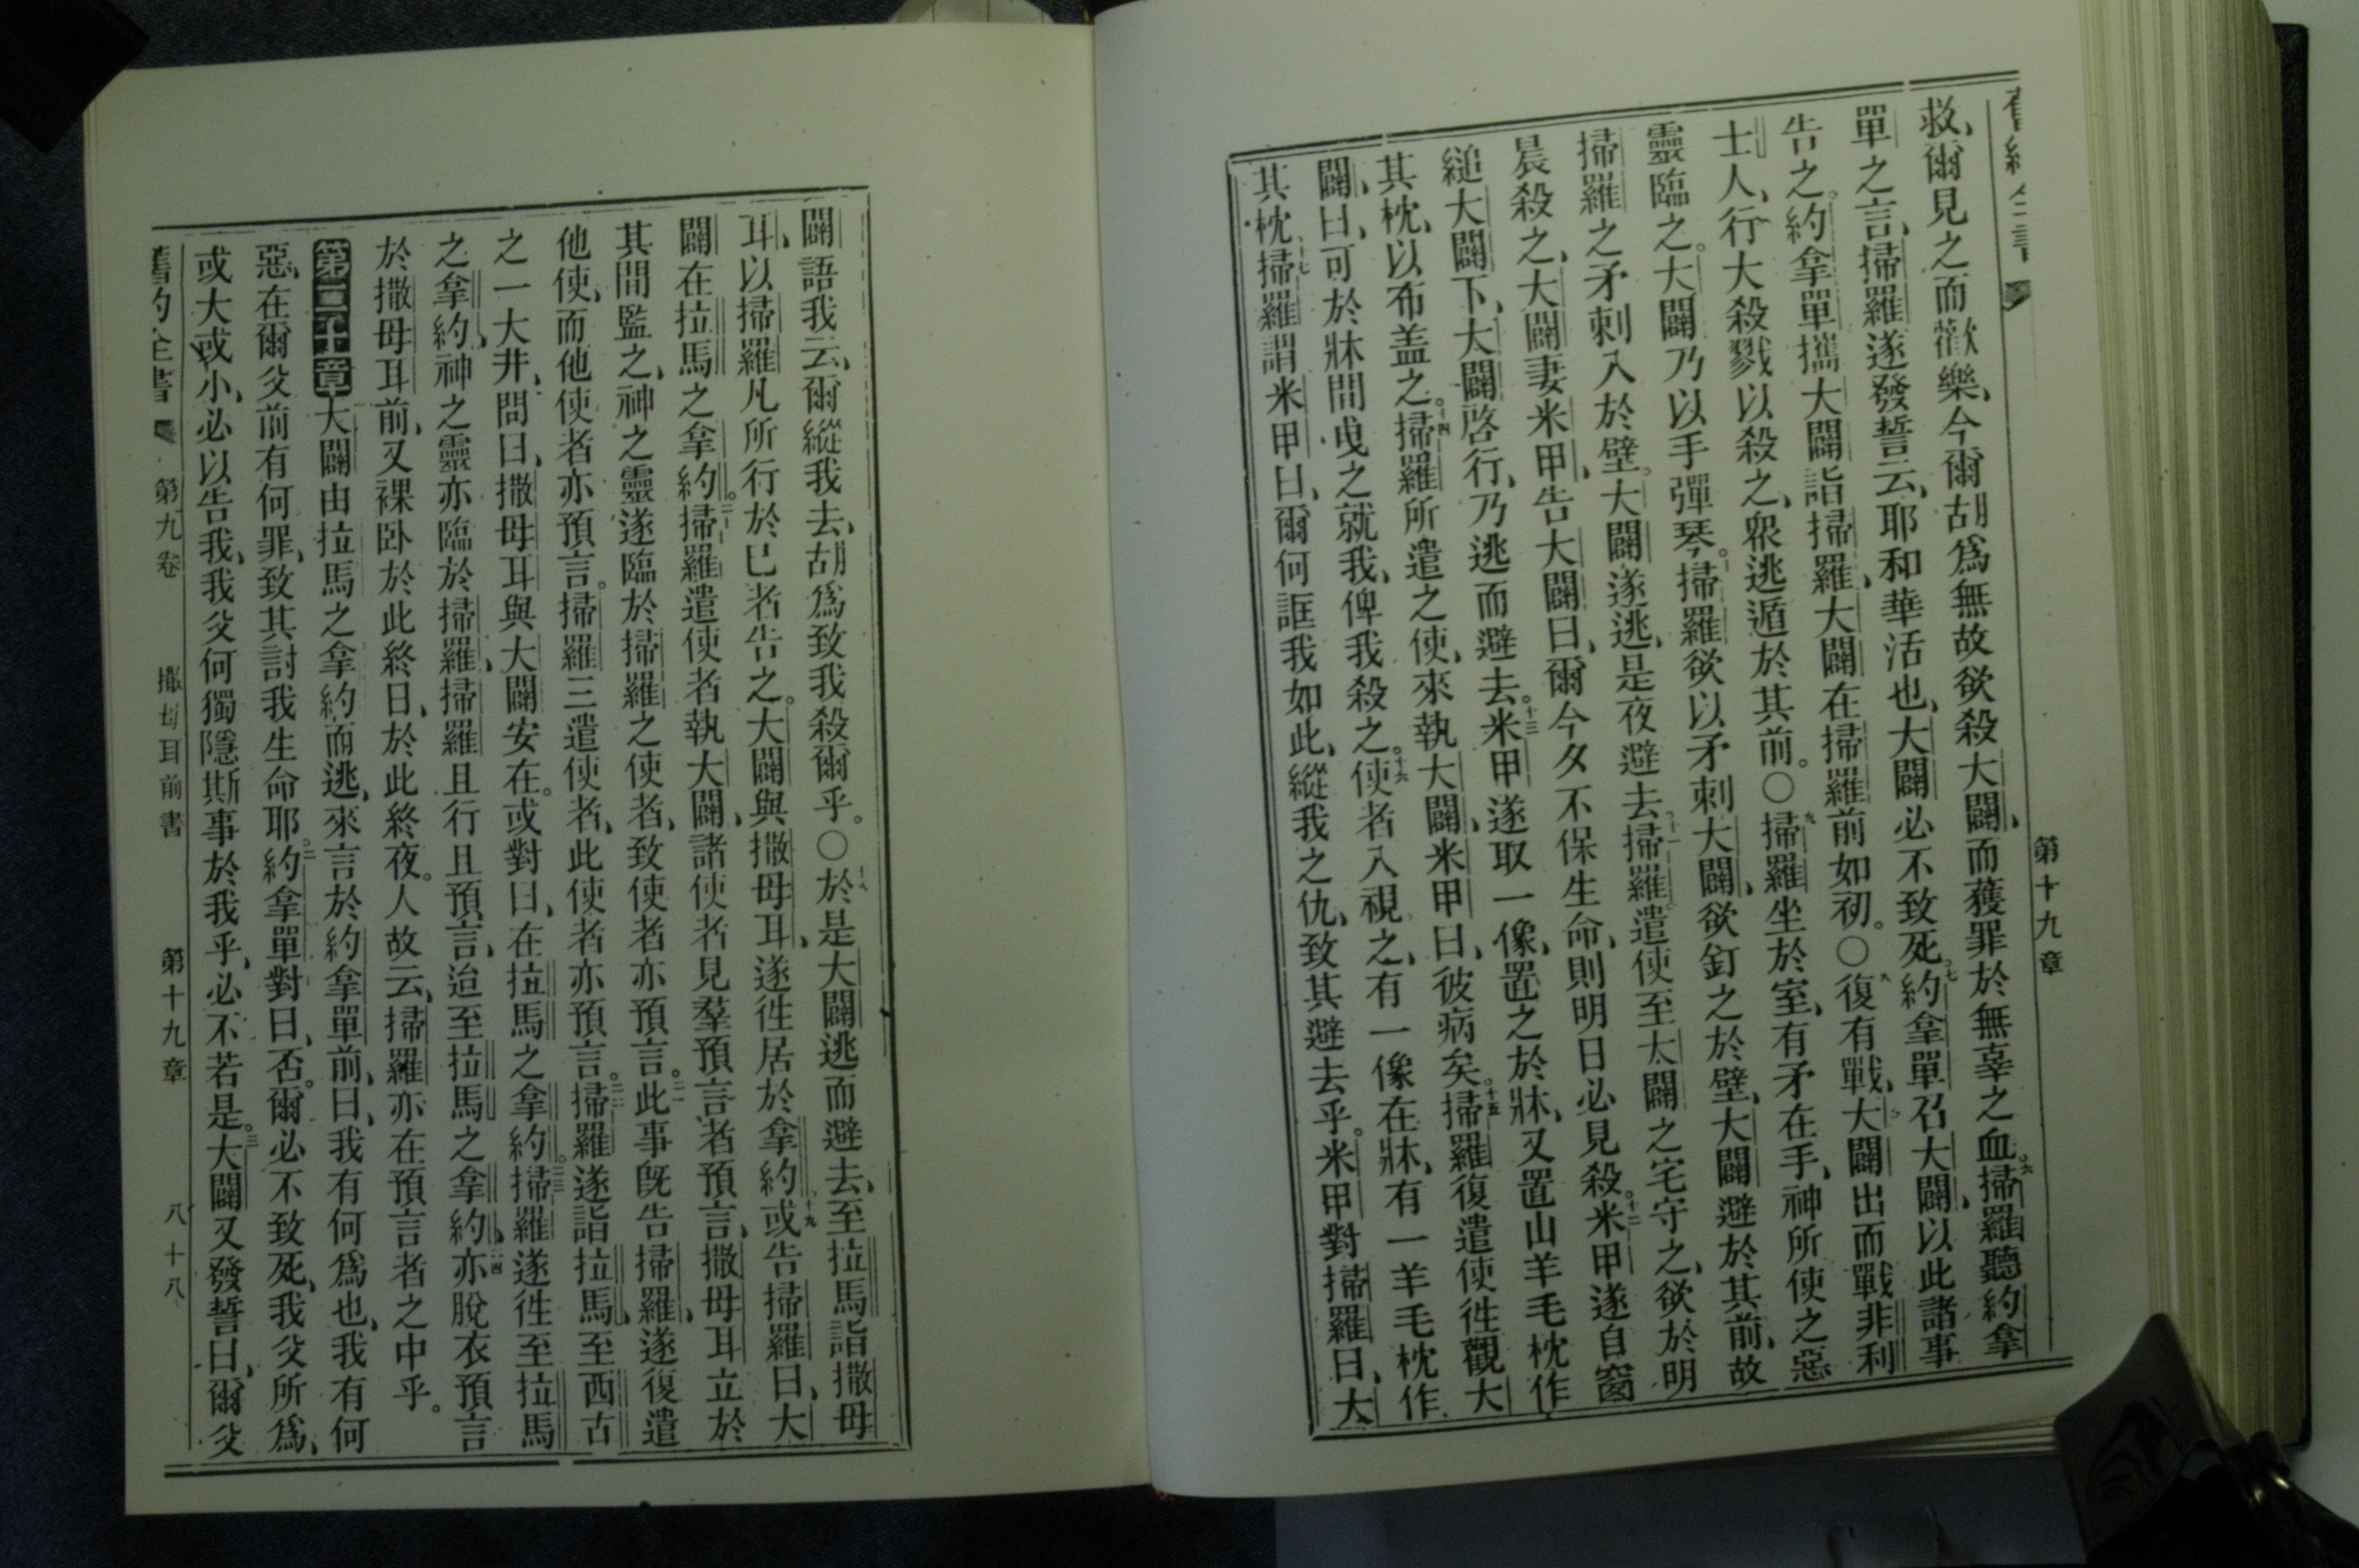 第十九章
救、爾見之而歡樂、今爾胡爲無故欲殺大闢、而獲罪於無辜之血。六掃羅聽約拿
單之言、掃羅遂發誓云、耶和華活也、大闢必不致死。七約拿單召大闢、以此諸事
告之。約拿單攜大闢詣掃羅、大闢在掃羅前如初。〇八復有戰、大闢出而戰非利
士人、行大殺戮以殺之、衆逃遁於其前。〇九掃羅坐於室、有矛在手、神所使之惡
靈臨之。大闢乃以手彈琴。掃羅欲以矛刺大闢、欲釘之於壁、大闢避於其前、故
掃羅之矛刺入於壁。大闢遂逃、是夜避去。十一掃羅遣使至大闢之宅守之、欲於明
晨殺之、大闢妻米甲、告大闢曰、爾今夕不保生命、則明日必見殺。十二米甲遂自窗
縋大闢下、大闢啓行、乃逃而避去。十三米甲遂取一像、置之於牀、又置山羊毛枕作
其枕、以布盖之。十四掃羅所遣之使、來執大闢、米甲曰、彼病矣。十五掃羅復遣使徃觀大
闢、曰、可於牀間曳之就我、俾我殺之。十六使者入視之、有一像在牀、有一羊毛枕作
其枕。十七掃羅謂米甲曰、爾何誆我如此、縱我之仇、致其避去乎。米甲對掃羅曰、大
闢語我云、爾縱我去、胡爲致我殺爾乎。〇十八於是大闢逃而避去、至拉馬詣撒母
耳、以掃羅凡所行於己者告之。大闢與撒母耳、遂徃居於拿約。十九或告掃羅曰、大
闢在拉馬之拿約。二十掃羅遣使者執大闢、諸使者見羣預言者預言、撒母耳立於
其間監之、神之靈遂臨於掃羅之使者、致使者亦預言。二一此事旣告掃羅、遂復遣
他使、而他使者亦預言。掃羅三遣使者、此使者亦預言。二二掃羅遂詣拉馬、至西古
之一大井、問曰、撒母耳與大闢安在。或對曰、在拉馬之拿約。二三掃羅遂徃至拉馬
之拿約、神之靈亦臨於掃羅、掃羅且行且預言、迨至拉馬之拿約、二四亦脫衣預言
於撒母耳前、又裸卧於此終日、於此終夜。人故云、掃羅亦在預言者之中乎。
第二十章大闢由拉馬之拿約而逃、來言於約拿單前、曰、我有何爲也、我有何
惡、在爾父前有何罪、致其討我生命耶。二約拿單對曰、否。爾必不致死、我父所爲、
或大或小、必以告我、我父何獨隱斯事於我乎、必不若是。三大闢又發誓曰、爾父
舊約全書 第九卷 撒母耳前書 第十九章 八十八